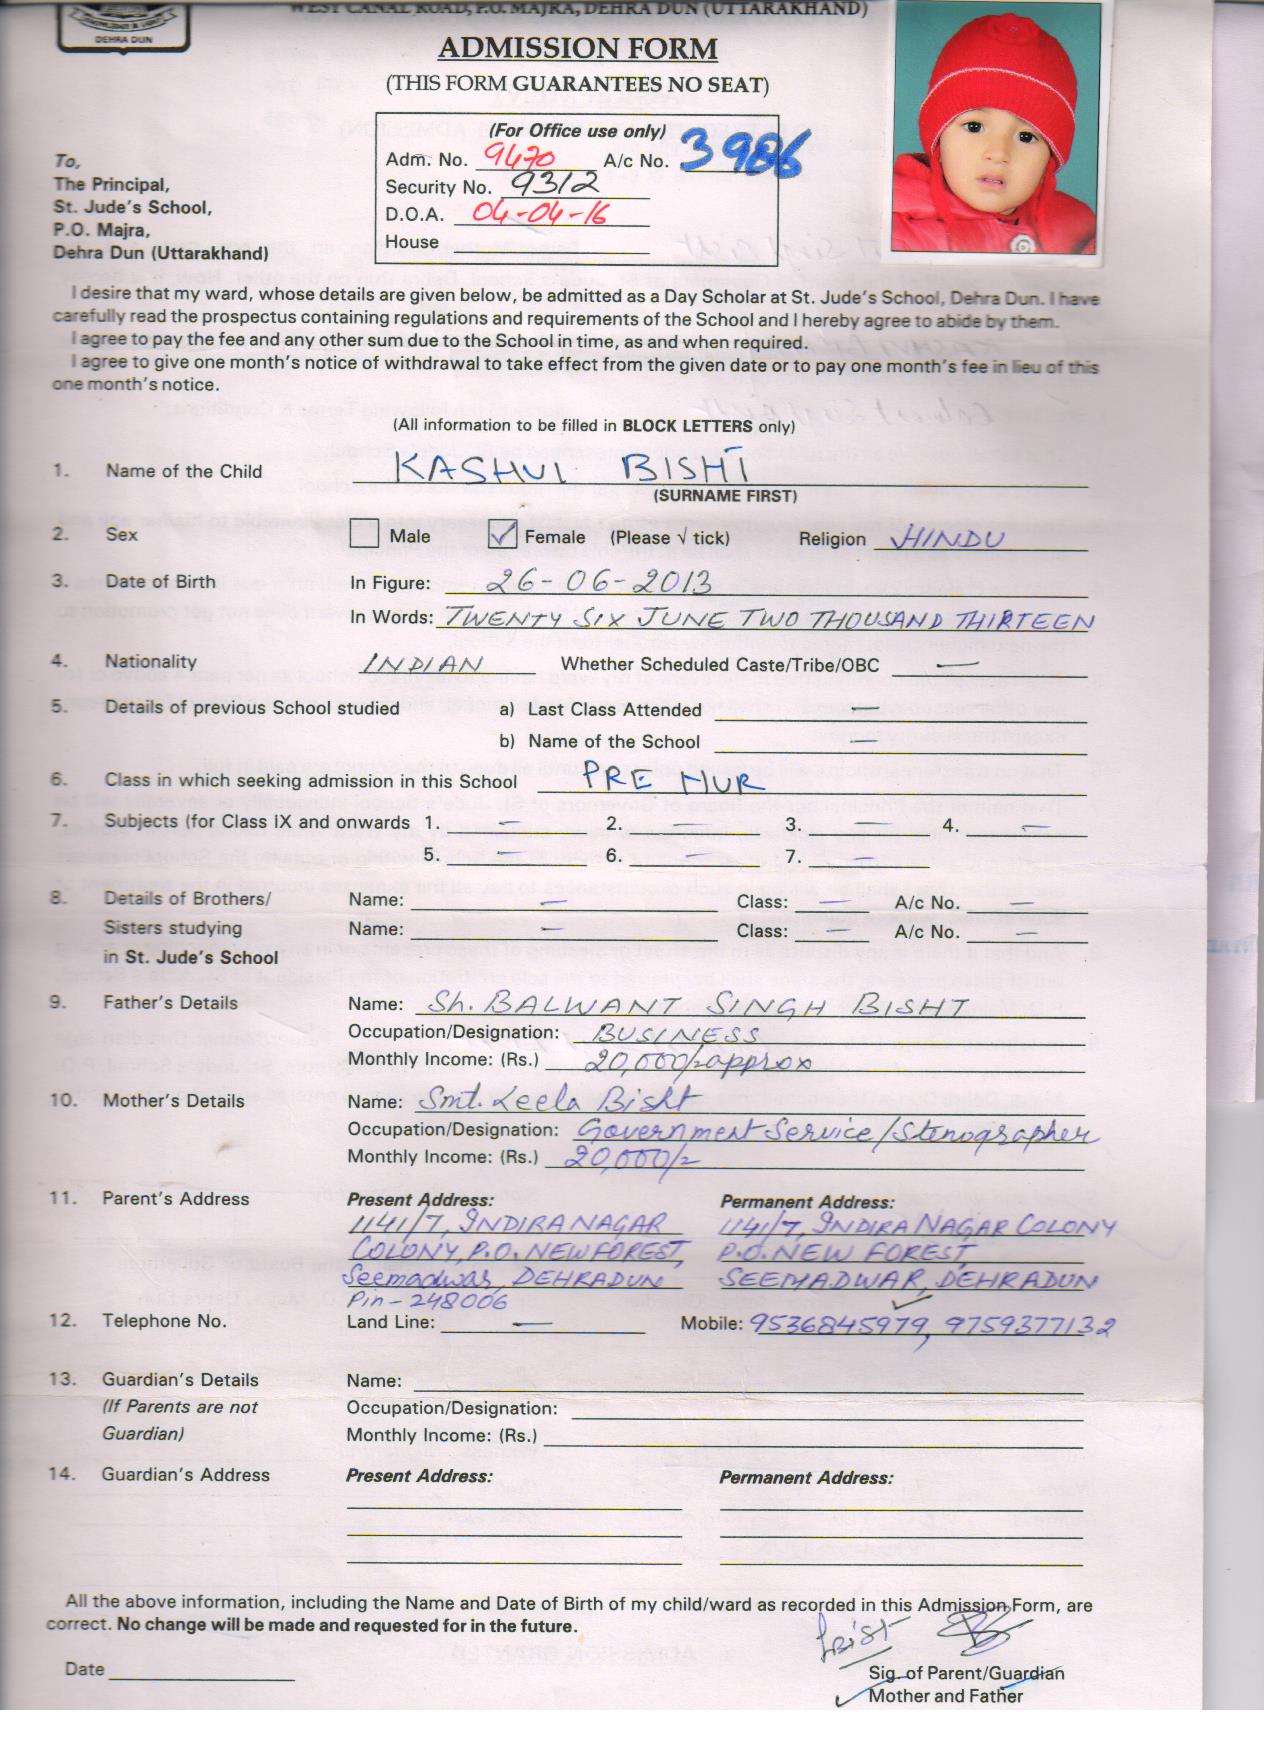 WEST CANAL ROAD, P.O. MAJRA, DEHRA DUN (UTTARAKHAND)
DEHRA DUN
ADMISSION FORM
(THIS FORM GUARANTEES NO SEAT)
(For Office use only)
Adm. No. 9470 A/c No. 3986
Security No. 9312
D.O.A. 04-04-16
House
To,
The Principal,
St. Jude's School,
P.O. Majra,
Dehra Dun (Uttarakhand)
I desire that my ward, whose details are given below, be admitted as a Day Scholar at St. Jude's School, Dehra Dun. I have
carefully read the prospectus containing regulations and requirements of the School and I hereby agree to abide by them.
I agree to pay the fee and any other sum due to the School in time, as and when required.
I agree to give one month's notice of withdrawal to take effect from the given date or to pay one month's fee in lieu of this
one month's notice.
(All information to be filled in BLOCK LETTERS only)
1. Name of the Child KASHVI BISHT
(SURNAME FIRST)
2. Sex Male ✓ Female (Please √ tick) Religion HINDU
3. Date of Birth In Figure: 26-06-2013
In Words: TWENTY SIX JUNE TWO THOUSAND THIRTEEN
4. Nationality INDIAN Whether Scheduled Caste/Tribe/OBC —
5. Details of previous School studied a) Last Class Attended —
b) Name of the School —
6. Class in which seeking admission in this School PRE NUR
7. Subjects (for Class IX and onwards 1. — 2. — 3. — 4. —
5. — 6. — 7. —
8. Details of Brothers/ Name: — Class: — A/c No. —
Sisters studying Name: — Class: — A/c No. —
in St. Jude's School
9. Father's Details Name: Sh. BALWANT SINGH BISHT
Occupation/Designation: BUSINESS
Monthly Income: (Rs.) 20,000/- approx
10. Mother's Details Name: Smt. Leela Bisht
Occupation/Designation: Government Service/Stenographer
Monthly Income: (Rs.) 20,000/-
11. Parent's Address Present Address: Permanent Address:
1141/7, INDIRA NAGAR 1141/7, INDIRA NAGAR COLONY
COLONY, P.O. NEW FOREST, P.O. NEW FOREST,
Seemadwar, DEHRADUN SEEMADWAR, DEHRADUN
Pin - 248006
12. Telephone No. Land Line: — Mobile: 9536845979, 9759377132
13. Guardian's Details Name:
(If Parents are not Occupation/Designation:
Guardian) Monthly Income: (Rs.)
14. Guardian's Address Present Address: Permanent Address:
All the above information, including the Name and Date of Birth of my child/ward as recorded in this Admission Form, are
correct. No change will be made and requested for in the future.
Date
Sig. of Parent/Guardian
Mother and Father